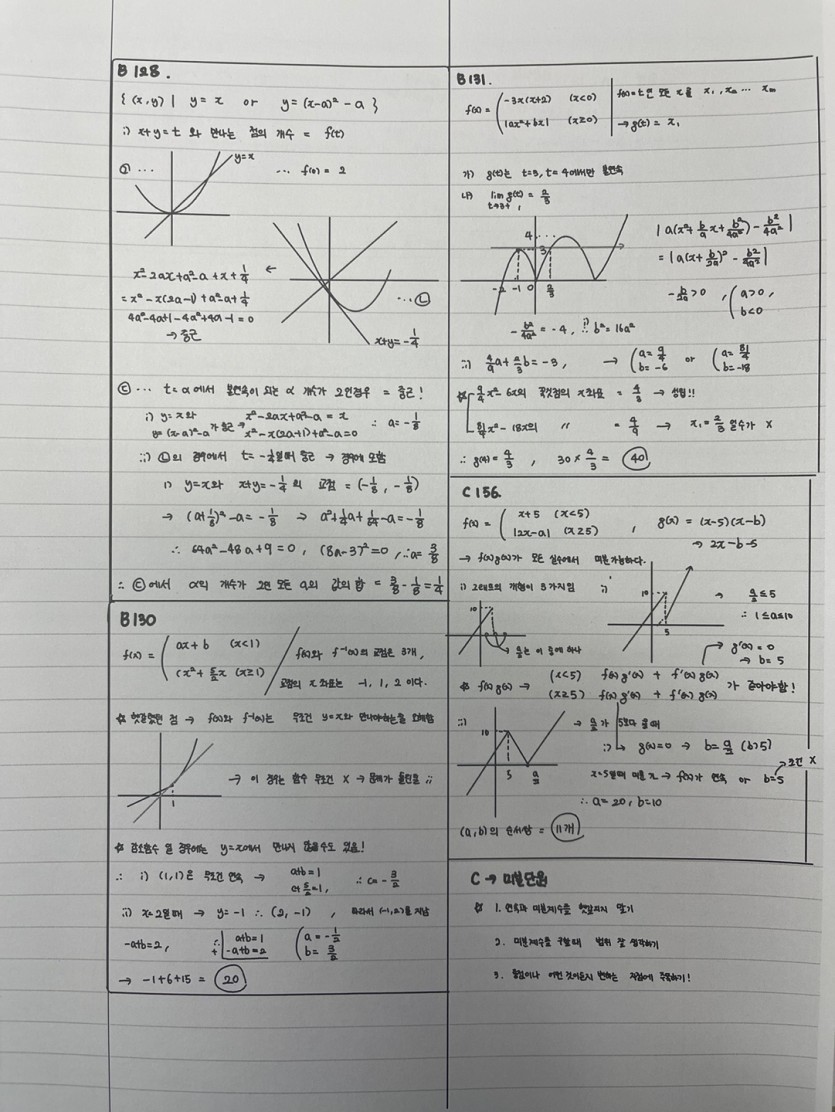 B 128.
{ (x,y) | y = x or y = (x-a)² - a }
i) x+y=t 와 만나는 점의 개수 = f(t)
㉠ ...
y=x
... f(0) = 2
x²-2ax+a²-a+x+1/4 ←
= x²-x(2a-1)+a²-a+1/4
4a²-4a+1-4a²+4a-1=0
→ 중근
... ㉡
x+y=-1/4
㉢ ... t=α에서 불연속이 되는 α 개수가 2인경우 = 중근!
i) y=x와 y=(x-a)²-a가 중근 → x²-2ax+a²-a=x
x²-x(2a+1)+a²-a=0 ∴ a=-1/8
ii) ㉡의 경우에서 t=-1/4일때 중근 → 경우에 포함
i) y=x와 x+y=-1/4의 교점 = (-1/8, -1/8)
→ (a+1/8)²-a=-1/8 → a²+1/4a+1/64-a=-1/8
∴ 64a²-48a+9=0, (8a-3)²=0, ∴a=3/8
∴ ㉢에서 α의 개수가 2인 모든 a의 값의 합 = 3/8-1/8=1/4
B130
f(x) = ( ax+b (x<1)
cx²+5/2x (x≥1)
f(x)와 f⁻¹(x)의 교점은 3개,
교점의 x좌표는 -1, 1, 2 이다.
☆ 헷갈렸던 점 → f(x)와 f⁻¹(x)는 무조건 y=x와 만나야하는줄
1
→ 이 경우는 함수 무조건 X → 문제가 틀린줄 ;;
☆ 감소함수 일 경우에는 y=x에서 만나지 않을수도 있음!
∴ i) (1,1)은 무조건 연속 → a+b=1
c+5/2=1, ∴ c=-3/2
ii) x=2일때 → y=-1 ∴ (2, -1), 따라서 (-1,2)를 지남
-a+b=2, ∴ a+b=1
+ -a+b=2
( a=-1/2
b=3/2
→ -1+6+15 = 20
B131.
f(x) = ( -3x(x+2) (x<0)
|ax²+bx| (x≥0)
f(x)=t인 모든 x를 x₁, x₂ ... xₘ
→ g(t) = x₁
가) g(t)는 t=3, t=4에서만 불연속
나) lim t→3+ g(t) = 2/3
4
3
-2 -1 0 2/3
| a(x²+b/a x+b²/4a²)-b²/4a² |
= | a(x+b/2a)²-b²/4a² |
-b/2a>0, ( a>0,
b<0
-b²/4a²=-4, ∴ b²=16a²
ii) 4/9a+2/3b=-3, → ( a=9/4
b=-6 or ( a=81/4
b=-18
☆ 9/4x²-6x의 꼭짓점의 x좌표 = 4/3 → 성립!!
81/4x²-18x의 〃 = 4/9 → x₁=2/3 일수가 X
∴ g(4)=4/3, 30×4/3= 40
C 156.
f(x) = ( x+5 (x<5)
|2x-a| (x≥5) , g(x) = (x-5)(x-b)
→ 2x-b-5
→ f(x)g(x)가 모든 실수에서 미분가능하다.
i) 그래프의 개형이 3가지임
10
→ a/2는 이 중에 하나
ii)
10
5
→ a/2≤5
∴ 1≤a≤10
g'(x)=0
→ b=5
☆ f(x)g(x) → (x<5) f(x)g'(x) + f'(x)g(x)
(x≥5) f(x)g'(x) + f'(x)g(x) 가 같아야함!
iii)
10
5 a/2
→ a/2가 5보다 클 때
ii) ↳ g(x)=0 → b=a/2 (b>5)
x=5일때 → f(x)가 연속 or b=5 → 조건 X
∴ a=20, b=10
(a,b)의 순서쌍 = 11개
C → 미분단원
☆ 1. 연속과 미분계수를 헷갈리지 말기
2. 미분계수를 구할때 범위 잘 생각하기
3. 중점이나 어떤 것이든지 변하는 지점에 주목하기!